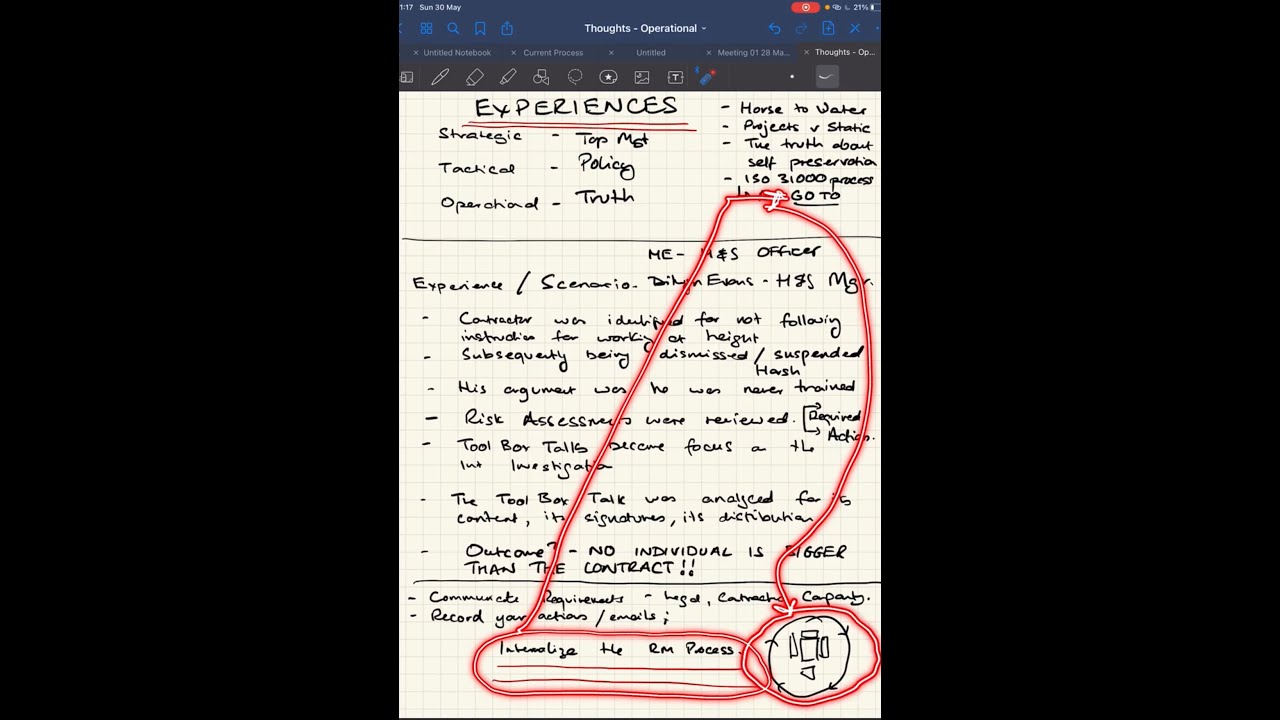 1:17 Sun 30 May
21%
Thoughts - Operational
Untitled Notebook
Current Process
Untitled
Meeting 01 28 Ma...
Thoughts - Op...
EXPERIENCES
Strategic - Top Mgt
Tactical - Policy
Operational - Truth
- Horse to Water
- Projects v Static
- The truth about
self preservation
- ISO 31000 process
GO TO
ME - H&S OFFICER
Experience / Scenario - Evans - H&S Mgr.
- Contractor was identified for not following
instruction for working at height
- Subsequently being dismissed / suspended
Harsh
- His argument was he was never trained
- Risk Assessments were reviewed. Required
Action.
- Tool Box Talks became focus on the
Int Investigation
- The Tool Box Talk was analyzed for its
content, its signatures, its distribution
- Outcome? - NO INDIVIDUAL IS BIGGER
THAN THE CONTRACT!!
- Communicate Requirements - Legal, Contractor, Company.
- Record your actions / emails;
Internalize the RM Process.